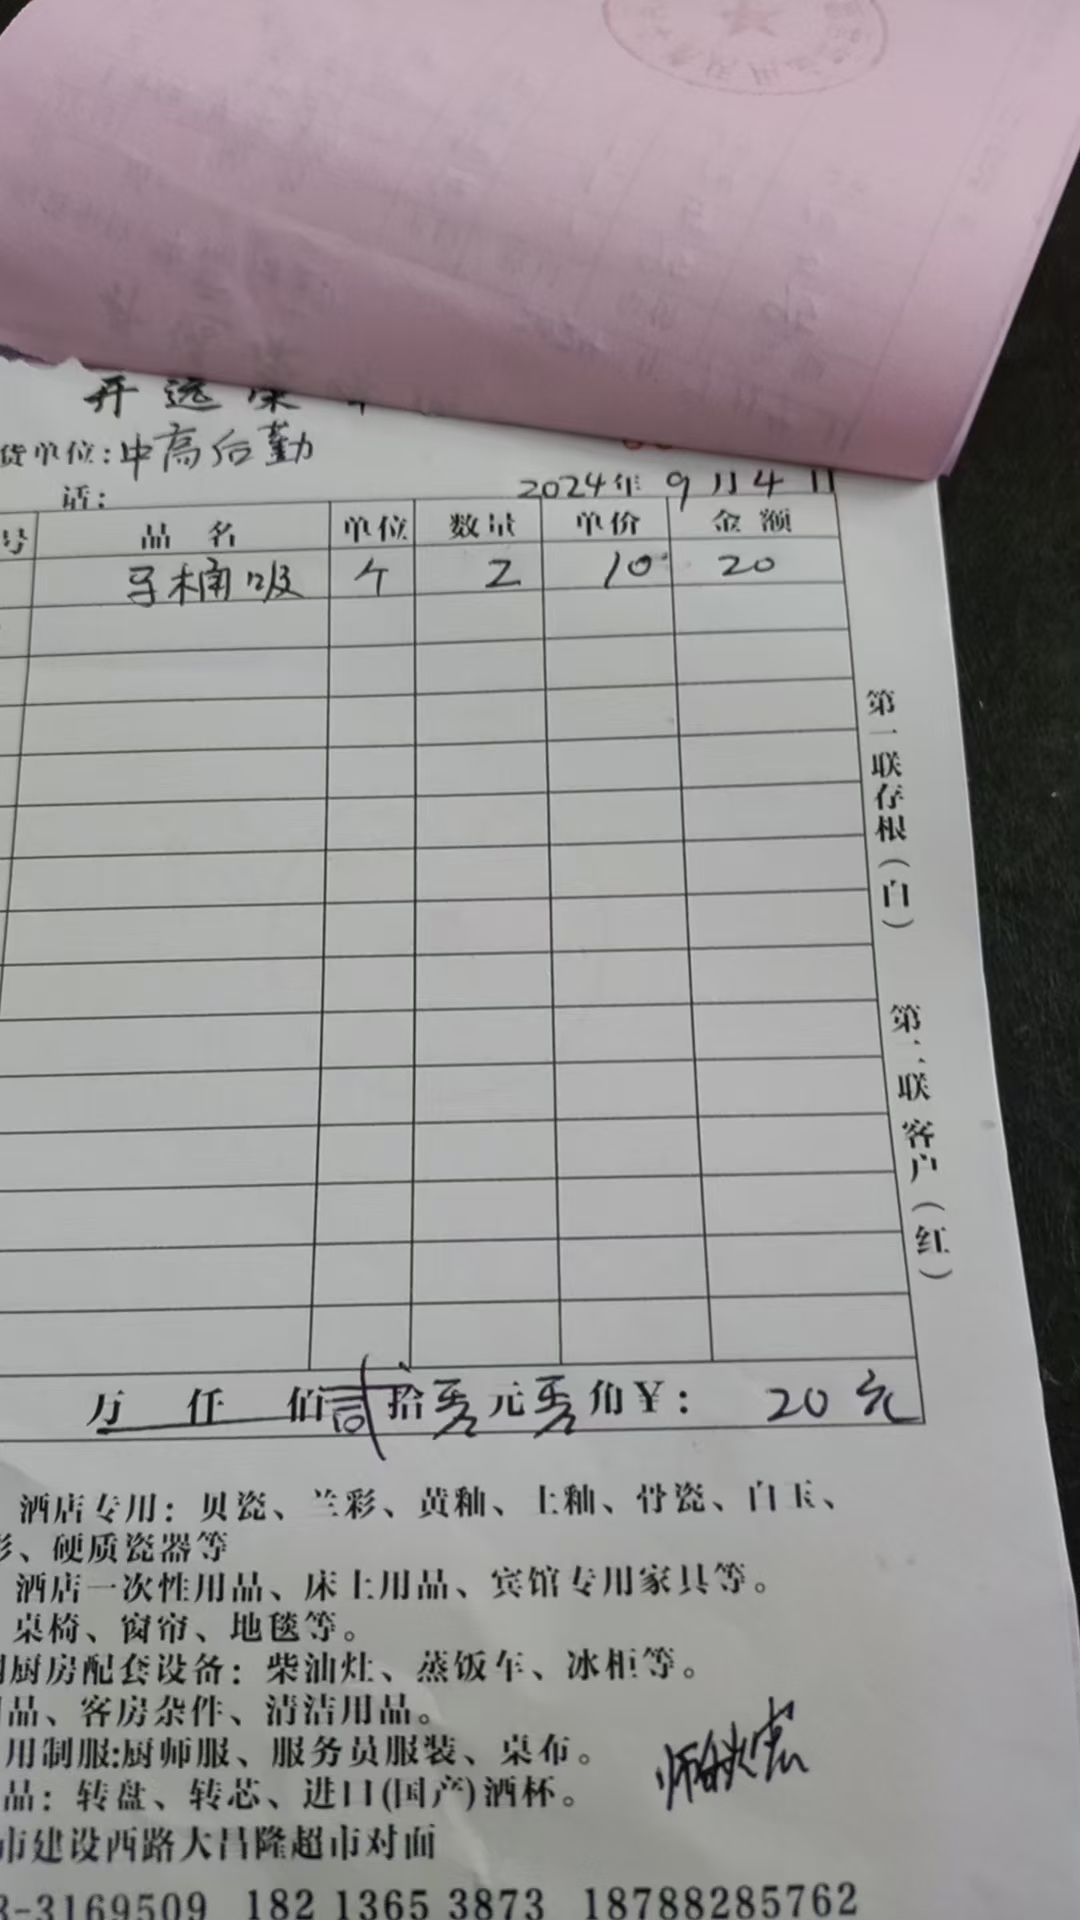 开远荣
货单位:中高后勤
话:
2024年 9月4日
号 品名 单位 数量 单价 金额
马桶吸 个 2 10 20
第一联存根(白)
第二联客户(红)
万 仟 佰 贰 拾 零 元 零 角 ¥: 20元
酒店专用: 贝瓷、兰彩、黄釉、土釉、骨瓷、白玉、
彩、硬质瓷器等
酒店一次性用品、床上用品、宾馆专用家具等。
桌椅、窗帘、地毯等。
厨房配套设备: 柴油灶、蒸饭车、冰柜等。
品、客房杂件、清洁用品。
用制服:厨师服、服务员服装、桌布。
品: 转盘、转芯、进口(国产)酒杯。
市建设西路大昌隆超市对面
3-3169509 182 1365 3873 18788285762